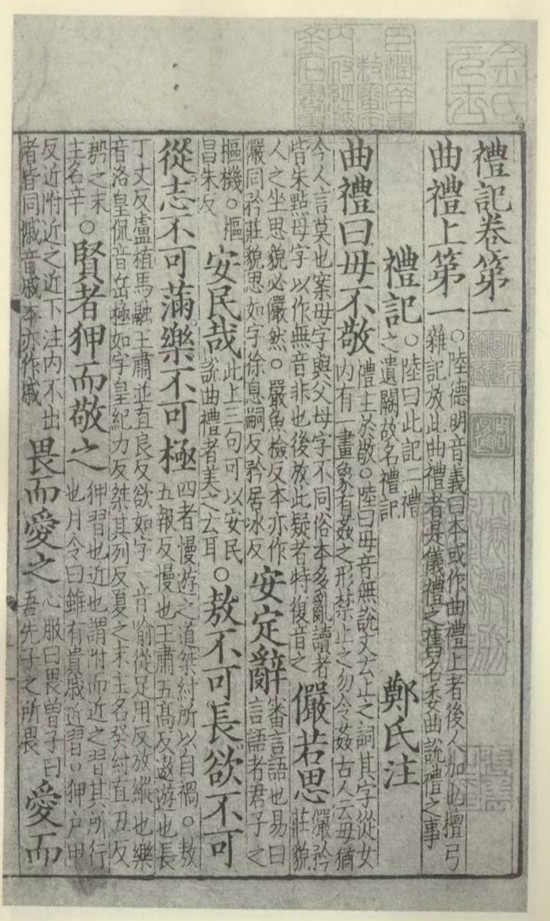 禮記卷第一
曲禮上第一 ○陸德明音義曰本或作曲禮上者後人加也檀弓雜記放此曲禮者是儀禮之舊名委曲說禮之事
禮記 ○陸曰此記二禮之遺闕故名禮記 鄭氏注
曲禮曰毋不敬 禮主於敬○陸曰毋音無說文云止之詞其字從女內有一畫象有姦之形禁止之勿令姦古人云毋猶
今人言莫也案毋字與父母字不同俗本多亂讀者皆朱點母字以作無音非也後放此疑者特復音之 儼若思 儼矜莊貌
人之坐思貌必儼然○嚴魚檢反本亦作儼同矜莊貌思如字徐息嗣反矜居冰反 安定辭 審言語也易曰言語者君子之
樞機○樞昌朱反 安民哉 此上三句可以安民說曲禮者美之云耳 ○敖不可長欲不可
從志不可滿樂不可極 四者慢遊之道桀紂所以自禍○敖五報反慢也王肅五高反遨遊也長
丁丈反盧植馬融王肅並直良反欲如字一音喻從足用反放縱也樂音洛皇侃音岳極如字皇紀力反桀其列反夏之末主名癸紂直丑反
殷之末主名辛 ○賢者狎而敬之 狎習也近也謂附而近之習其所行也月令曰雖有貴戚近習○狎戶甲
反近附近之近下注內不出者皆同慽音戚本亦作戚 畏而愛之 心服曰畏曾子曰吾先子之所畏 愛而